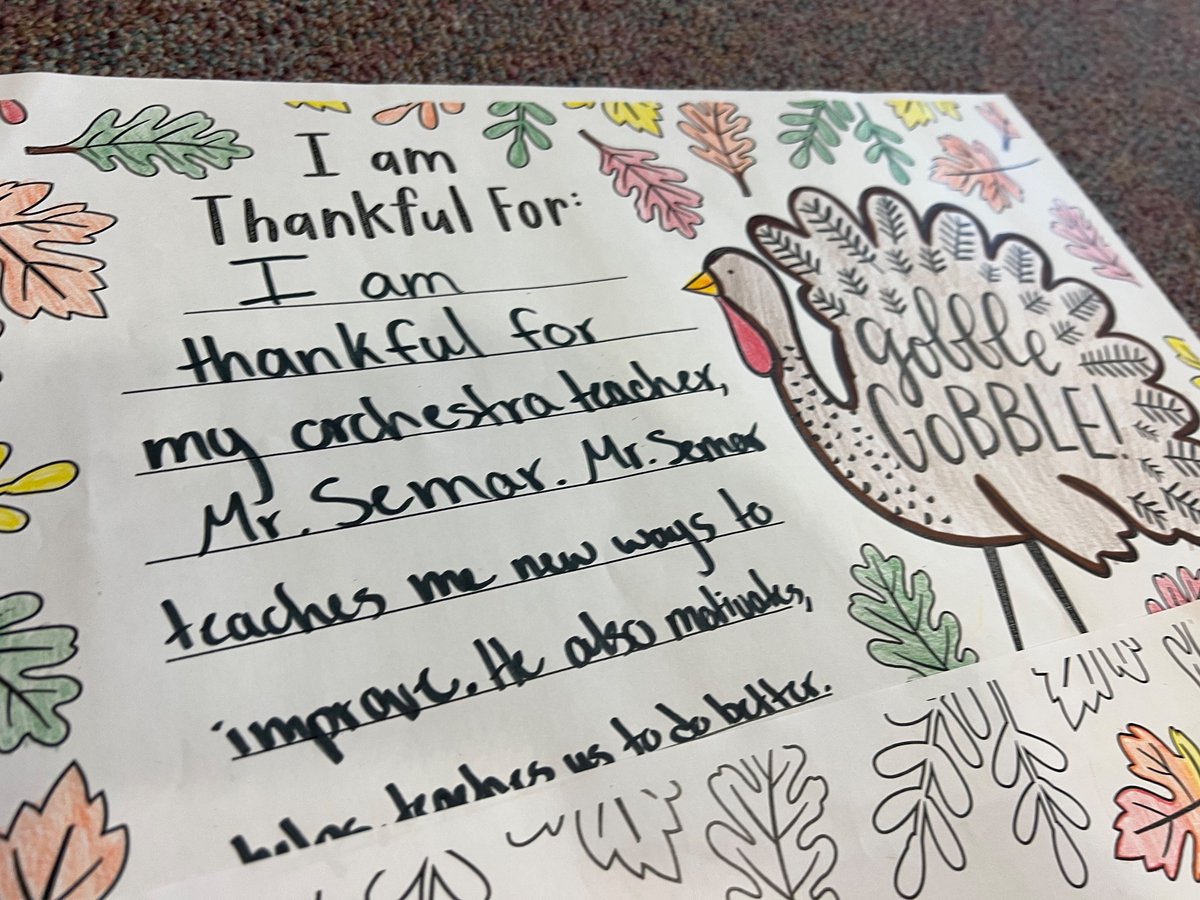 I am
Thankful For:
I am
thankful for
my orchestra teacher,
Mr. Semar. Mr. Semar
teaches me new ways to
improve. He also motivates,
helps, teaches us to do better.
gobble
GOBBLE!